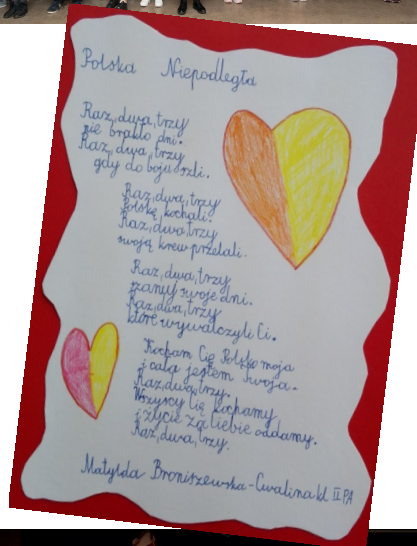 Polska Niepodległa
Raz, dwa, trzy
nie brakło dni.
Raz, dwa, trzy
gdy do boju szli.
Raz, dwa, trzy
Polskę kochali.
Raz, dwa, trzy
swoją krew przelali.
Raz, dwa, trzy
szanuj swoje dni.
Raz, dwa, trzy
które wywalczyli Ci.
Kocham Cię Polsko moja
i cała jestem Twoja.
Raz, dwa, trzy.
Wszyscy Cię kochamy
i życie za Ciebie oddamy.
Raz, dwa, trzy.
Matylda Broniszewska-Cwalina kl II PA